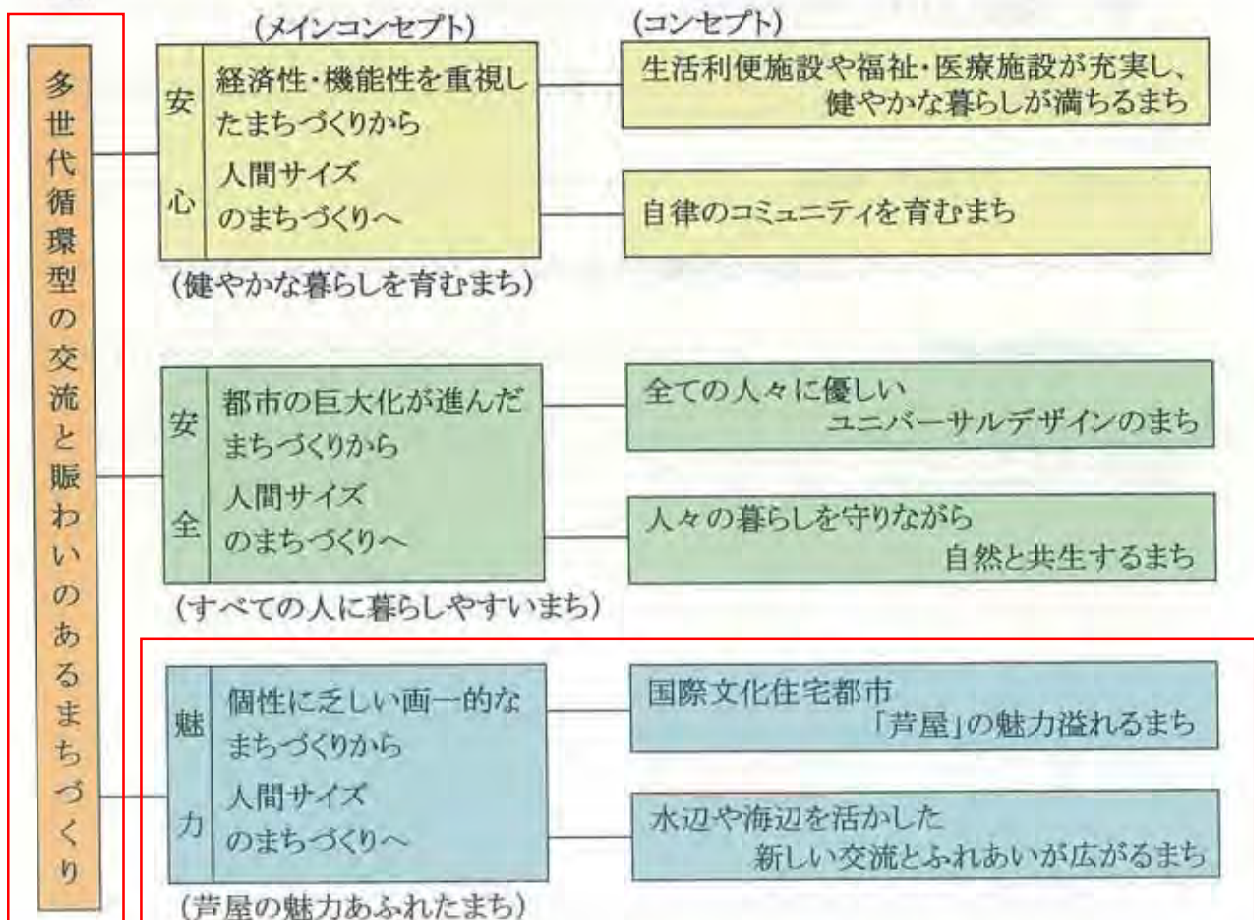 (メインコンセプト)
(コンセプト)
多世代循環型の交流と賑わいのあるまちづくり
安心
経済性・機能性を重視し
たまちづくりから
人間サイズ
のまちづくりへ
(健やかな暮らしを育むまち)
生活利便施設や福祉・医療施設が充実し、
健やかな暮らしが満ちるまち
自律のコミュニティを育むまち
安全
都市の巨大化が進んだ
まちづくりから
人間サイズ
のまちづくりへ
(すべての人に暮らしやすいまち)
全ての人々に優しい
ユニバーサルデザインのまち
人々の暮らしを守りながら
自然と共生するまち
魅力
個性に乏しい画一的な
まちづくりから
人間サイズ
のまちづくりへ
(芦屋の魅力あふれたまち)
国際文化住宅都市
「芦屋」の魅力溢れるまち
水辺や海辺を活かした
新しい交流とふれあいが広がるまち